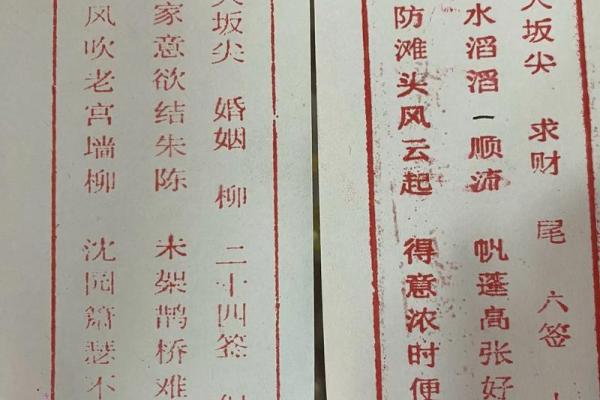 坂尖 求财 尾 六签
水滔滔一顺流 帆蓬高张好
防滩头风云起 得意浓时便
坂尖 婚姻 柳 二十四签
家意欲结朱陈 未架鹊桥难
风吹老宫墙柳 沈园箫瑟不